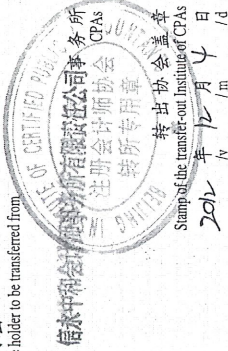 holder to be transferred from
信永中和会计师事务所有限责任公司 事务所
CPAs
OF CERTIFIED PUBLIC
注册会计师协会
转所专用章
转出协会盖章
Stamp of the transfer-out Institute of CPAs
2012 年 12 月 4 日
/y /m /d